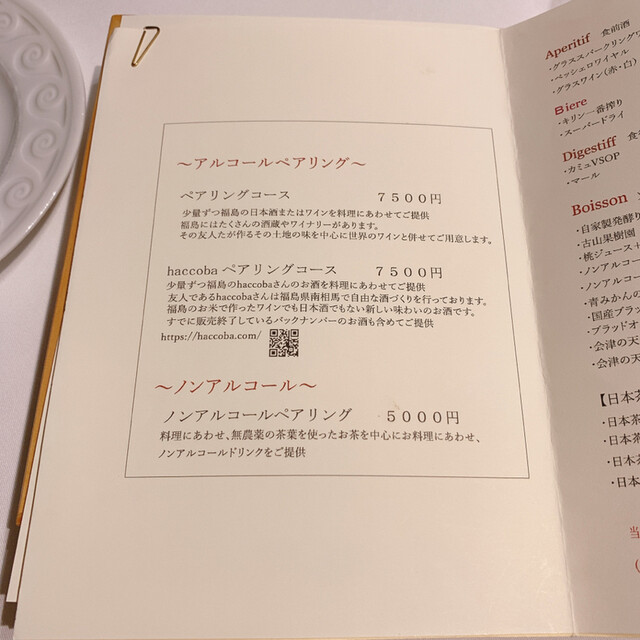 ～アルコールペアリング～
ペアリングコース 7500円
少量ずつ福島の日本酒またはワインを料理にあわせてご提供
福島にはたくさんの酒蔵やワイナリーがあります。
その友人たが作るその土地の味を中心に世界のワインと併せてご用意します。
haccoba ペアリングコース 7500円
少量ずつ福島のhaccobaさんのお酒を料理にあわせてご提供
友人であるhaccobaさんは福島県南相馬で自由な酒づくりを行っております。
福島のお米で作ったワインでも日本酒でもない新しい味わいのお酒です。
すでに販売終了しているバックナンバーのお酒も含めてご提供
https://haccoba.com/
～ノンアルコール～
ノンアルコールペアリング 5000円
料理にあわせ、無農薬の茶葉を使ったお茶を中心にお料理にあわせ、
ノンアルコールドリンクをご提供
Aperitif 食前酒
・グラススパークリングワ
・ペッシェロワイヤル
・グラスワイン(赤・白)
Biere
・キリン一番搾り
・スーパードライ
Digestiff 食
・カミュVSOP
・マール
Boisson
・自家製発酵
・古山果樹園
・桃ジュース
・ノンアルコー
・ノンアルコー
・青みかんの
・国産ブラッ
・ブラッドオ
・会津の天
・会津の天
【日本茶
・日本茶
・日本茶
・日本茶
・日本
当